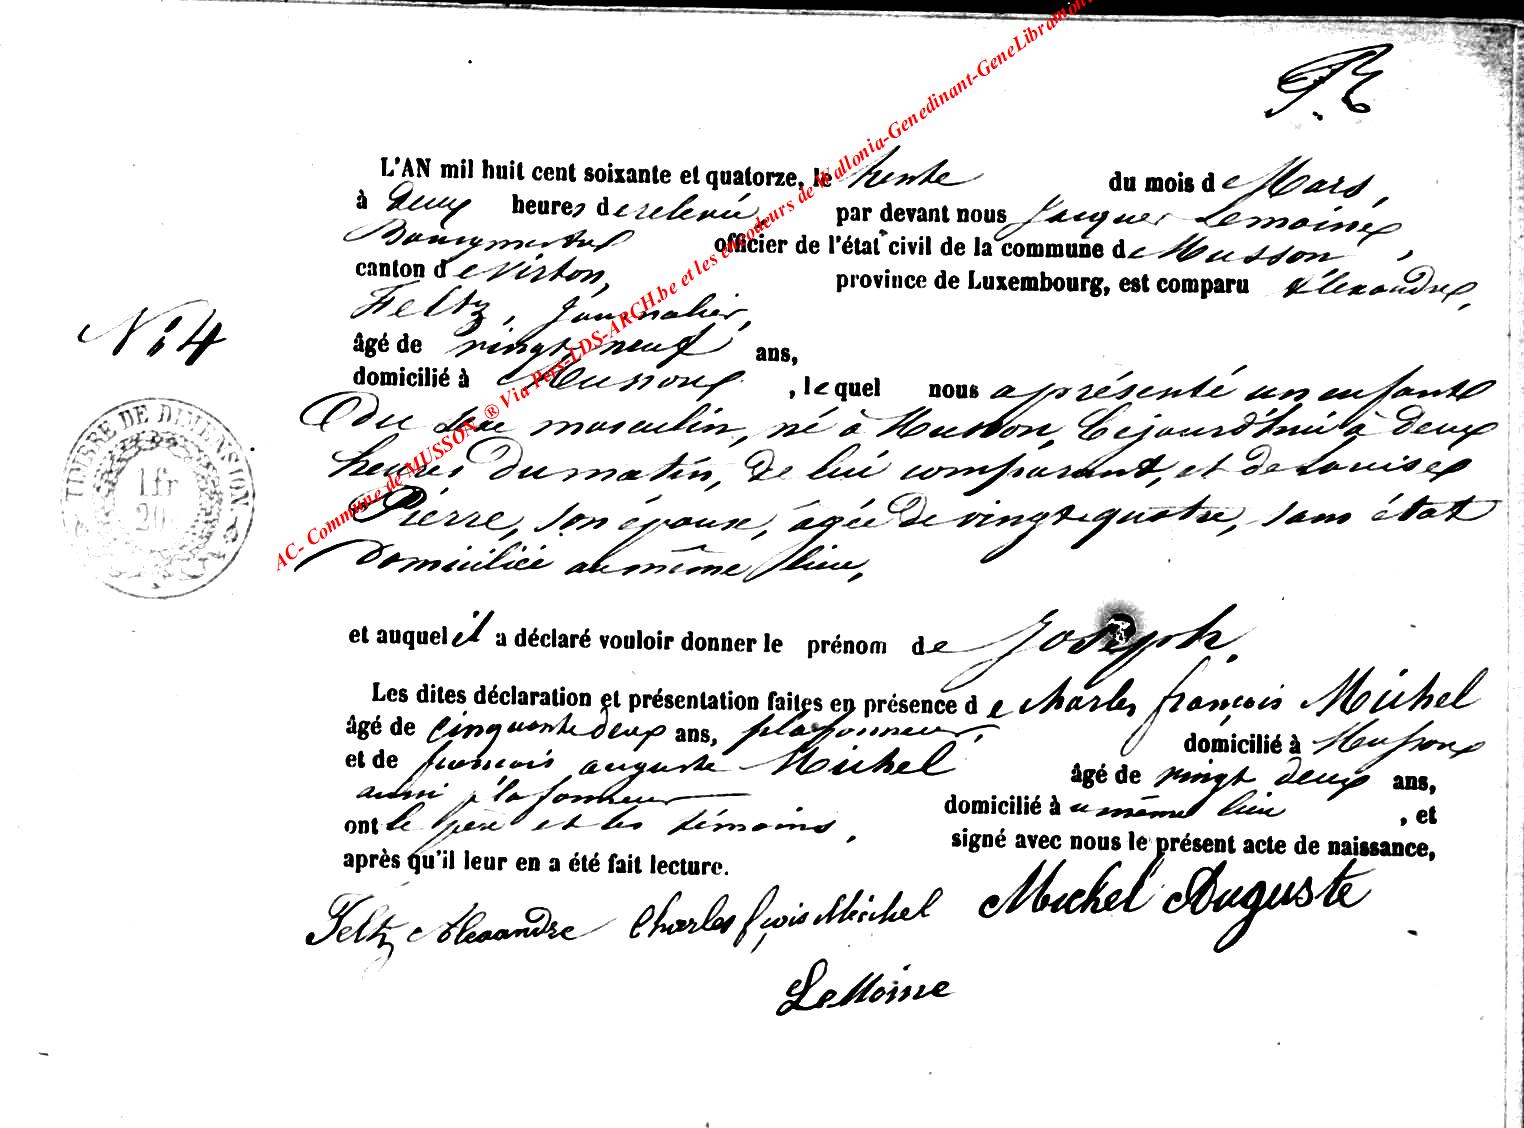 L'AN mil huit cent soixante et quatorze, le trente du mois de Mars,
à deux heures de relevée, par devant nous Jacques Lemoine,
Bourgmestre officier de l'état civil de la commune de Musson,
canton de Virton, province de Luxembourg, est comparu Alexandre
Feltz, Journalier,
N: 4
âgé de vingt neuf ans,
domicilié à Musson, lequel nous a présenté un enfant
du sexe masculin, né à Musson, Cejourd'hui à deux
heures du matin, de lui comparant, et de Louise
Pierre, son épouse, âgée de vingt quatre, sans état
domiciliée au même lieu,
TIMBRE DE DIMENSION
1 fr
20
et auquel il a déclaré vouloir donner le prénom de Joseph.
Les dites déclaration et présentation faites en présence de Charles françois Michel
âgé de cinquante deux ans, plafonneur, domicilié à Musson
et de françois auguste Michel âgé de vingt deux ans,
aussi plafonneur domicilié à u même lieu, et
ont le père et les témoins, signé avec nous le présent acte de naissance,
après qu'il leur en a été fait lecture.
Feltz Alexandre Charles fçois Michel Michel Auguste
LeMoine
AC- Commune de MUSSON ® Via Pers-LDS-ARCH.be et les encodeurs de Wallonia-Genedinant-GeneLibramont